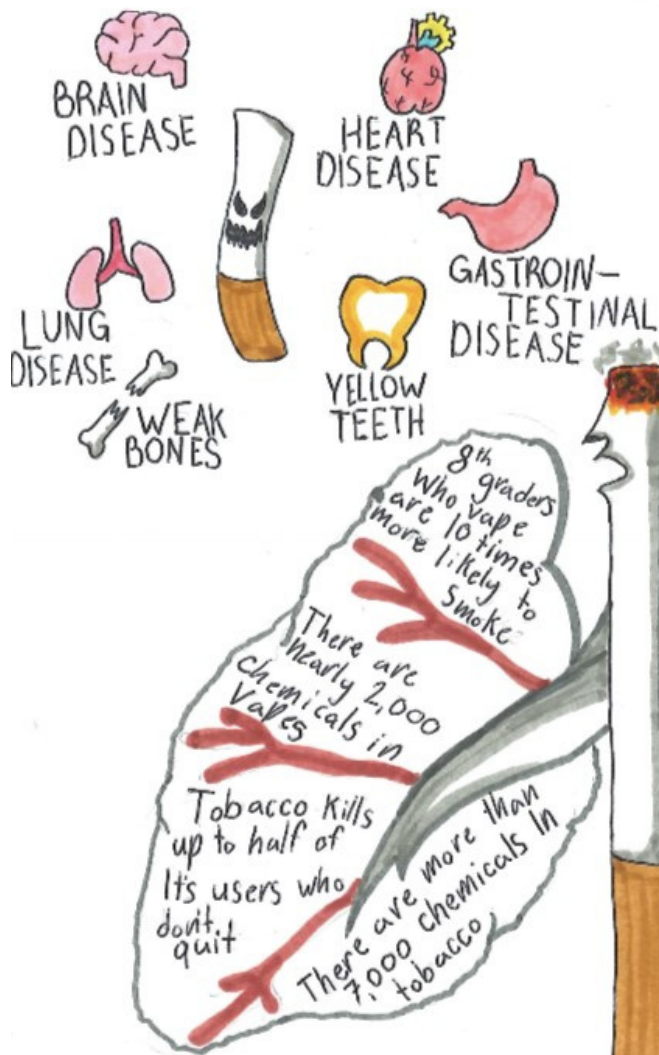 BRAIN
DISEASE
HEART
DISEASE
GASTROIN-
TESTINAL
DISEASE
LUNG
DISEASE
WEAK
BONES
YELLOW
TEETH
8th graders
who vape
are 10 times
more likely to
smoke
There are
nearly 2,000
chemicals in
vapes
Tobacco kills
up to half of
It's users who
don't
quit
There are more than
7,000 chemicals In
tobacco